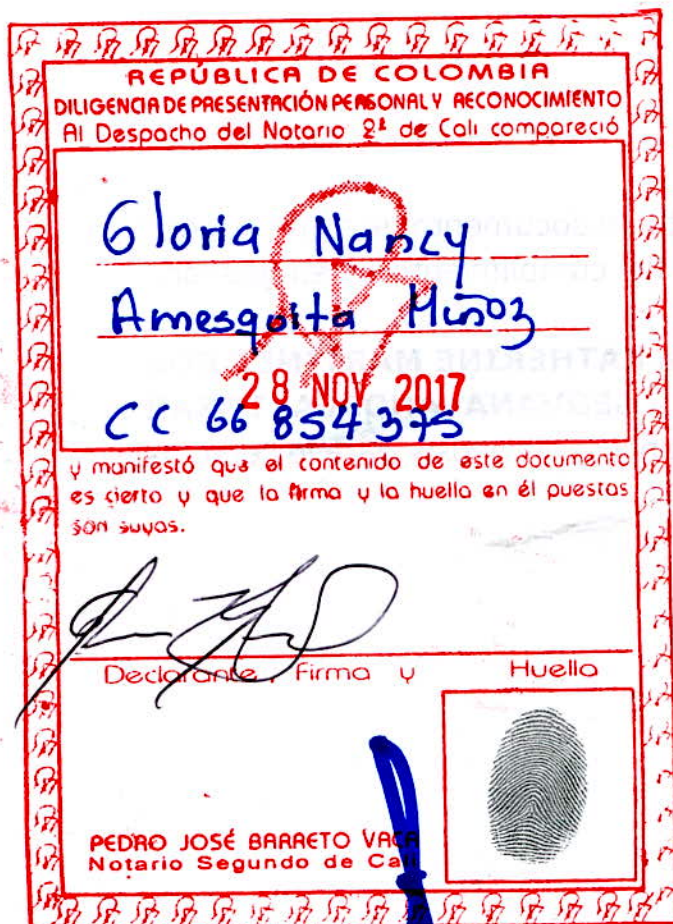 REPÚBLICA DE COLOMBIA
DILIGENCIA DE PRESENTACIÓN PERSONAL Y RECONOCIMIENTO
Al Despacho del Notario 2º de Cali compareció
Gloria Nancy
Amesquita Muñoz
28 NOV 2017
CC 66 854 375
y manifestó que el contenido de este documento
es cierto y que la firma y la huella en él puestas
son suyas.
Declarante, Firma y Huella
PEDRO JOSÉ BARRETO VACA
Notario Segundo de Cali